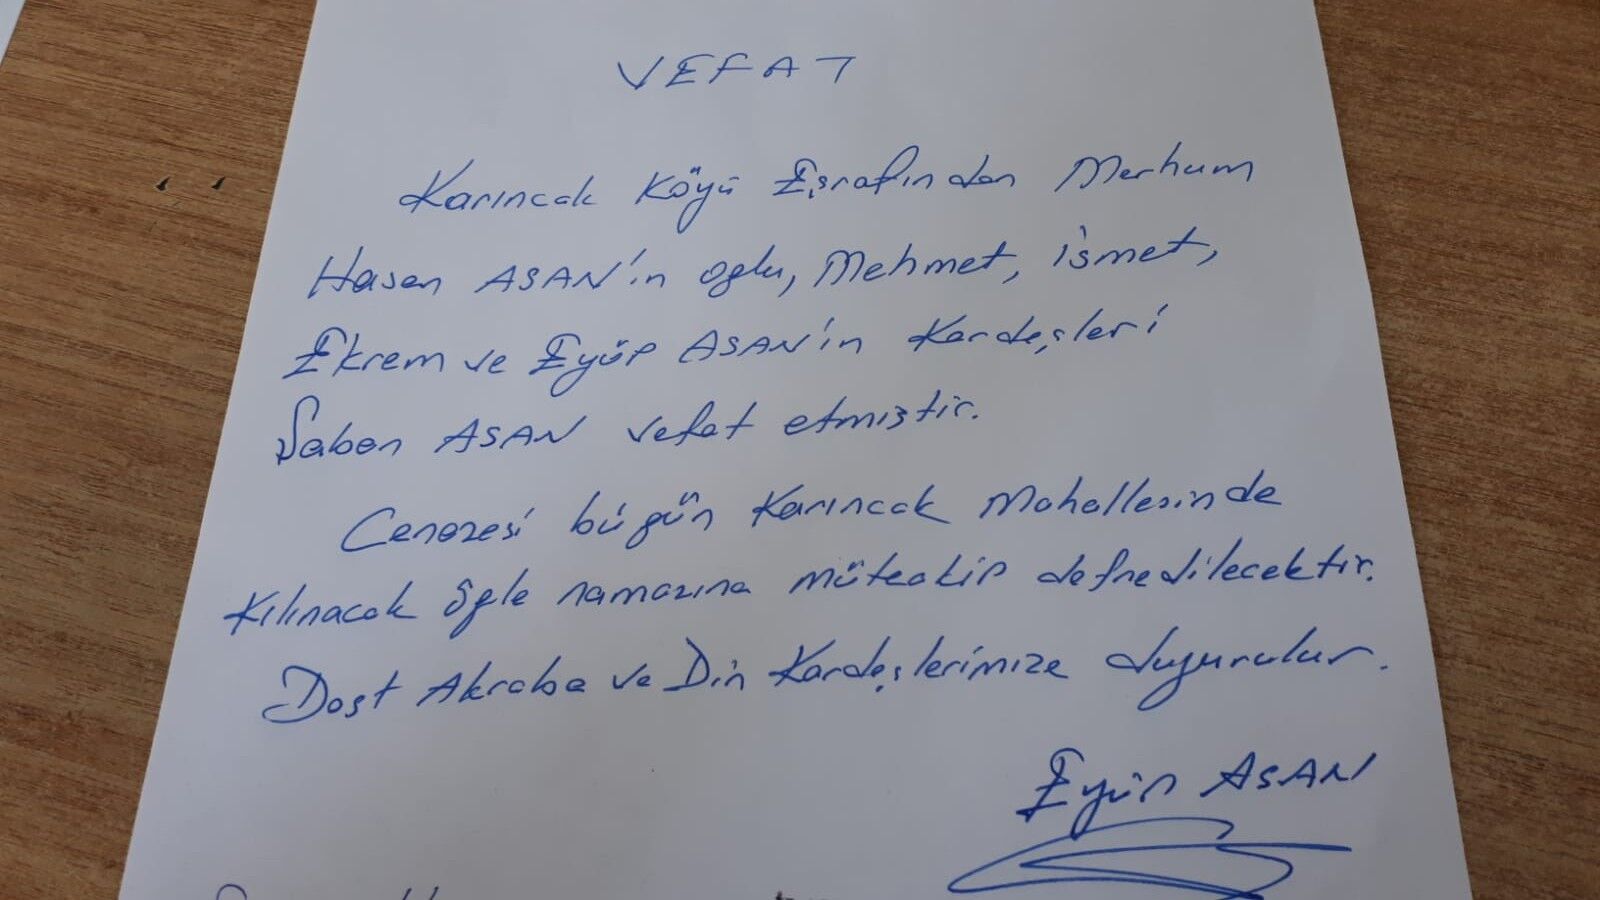 VEFAT
Karıncak Köyü Eşrafından Merhum
Hasan ASAN'ın oğlu, Mehmet, İsmet,
Ekrem ve Eyüp ASAN'ın Kardeşleri
Şaban ASAN vefat etmiştir.
Cenazesi bügün Karıncak Mahallesinde
Kılınacak öğle namazına müteakip defnedilecektir.
Dost Akraba ve Din Kardeşlerimize duyurulur.
Eyüp ASAN